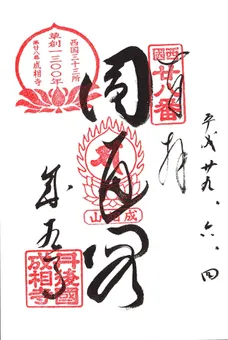 平成廿九、六、四
奉拝
西国
廿八番
圓通閣
成相山
成相寺
丹後國
成相寺
西国三十三所
草創一三〇〇年
第廿八番 成相寺